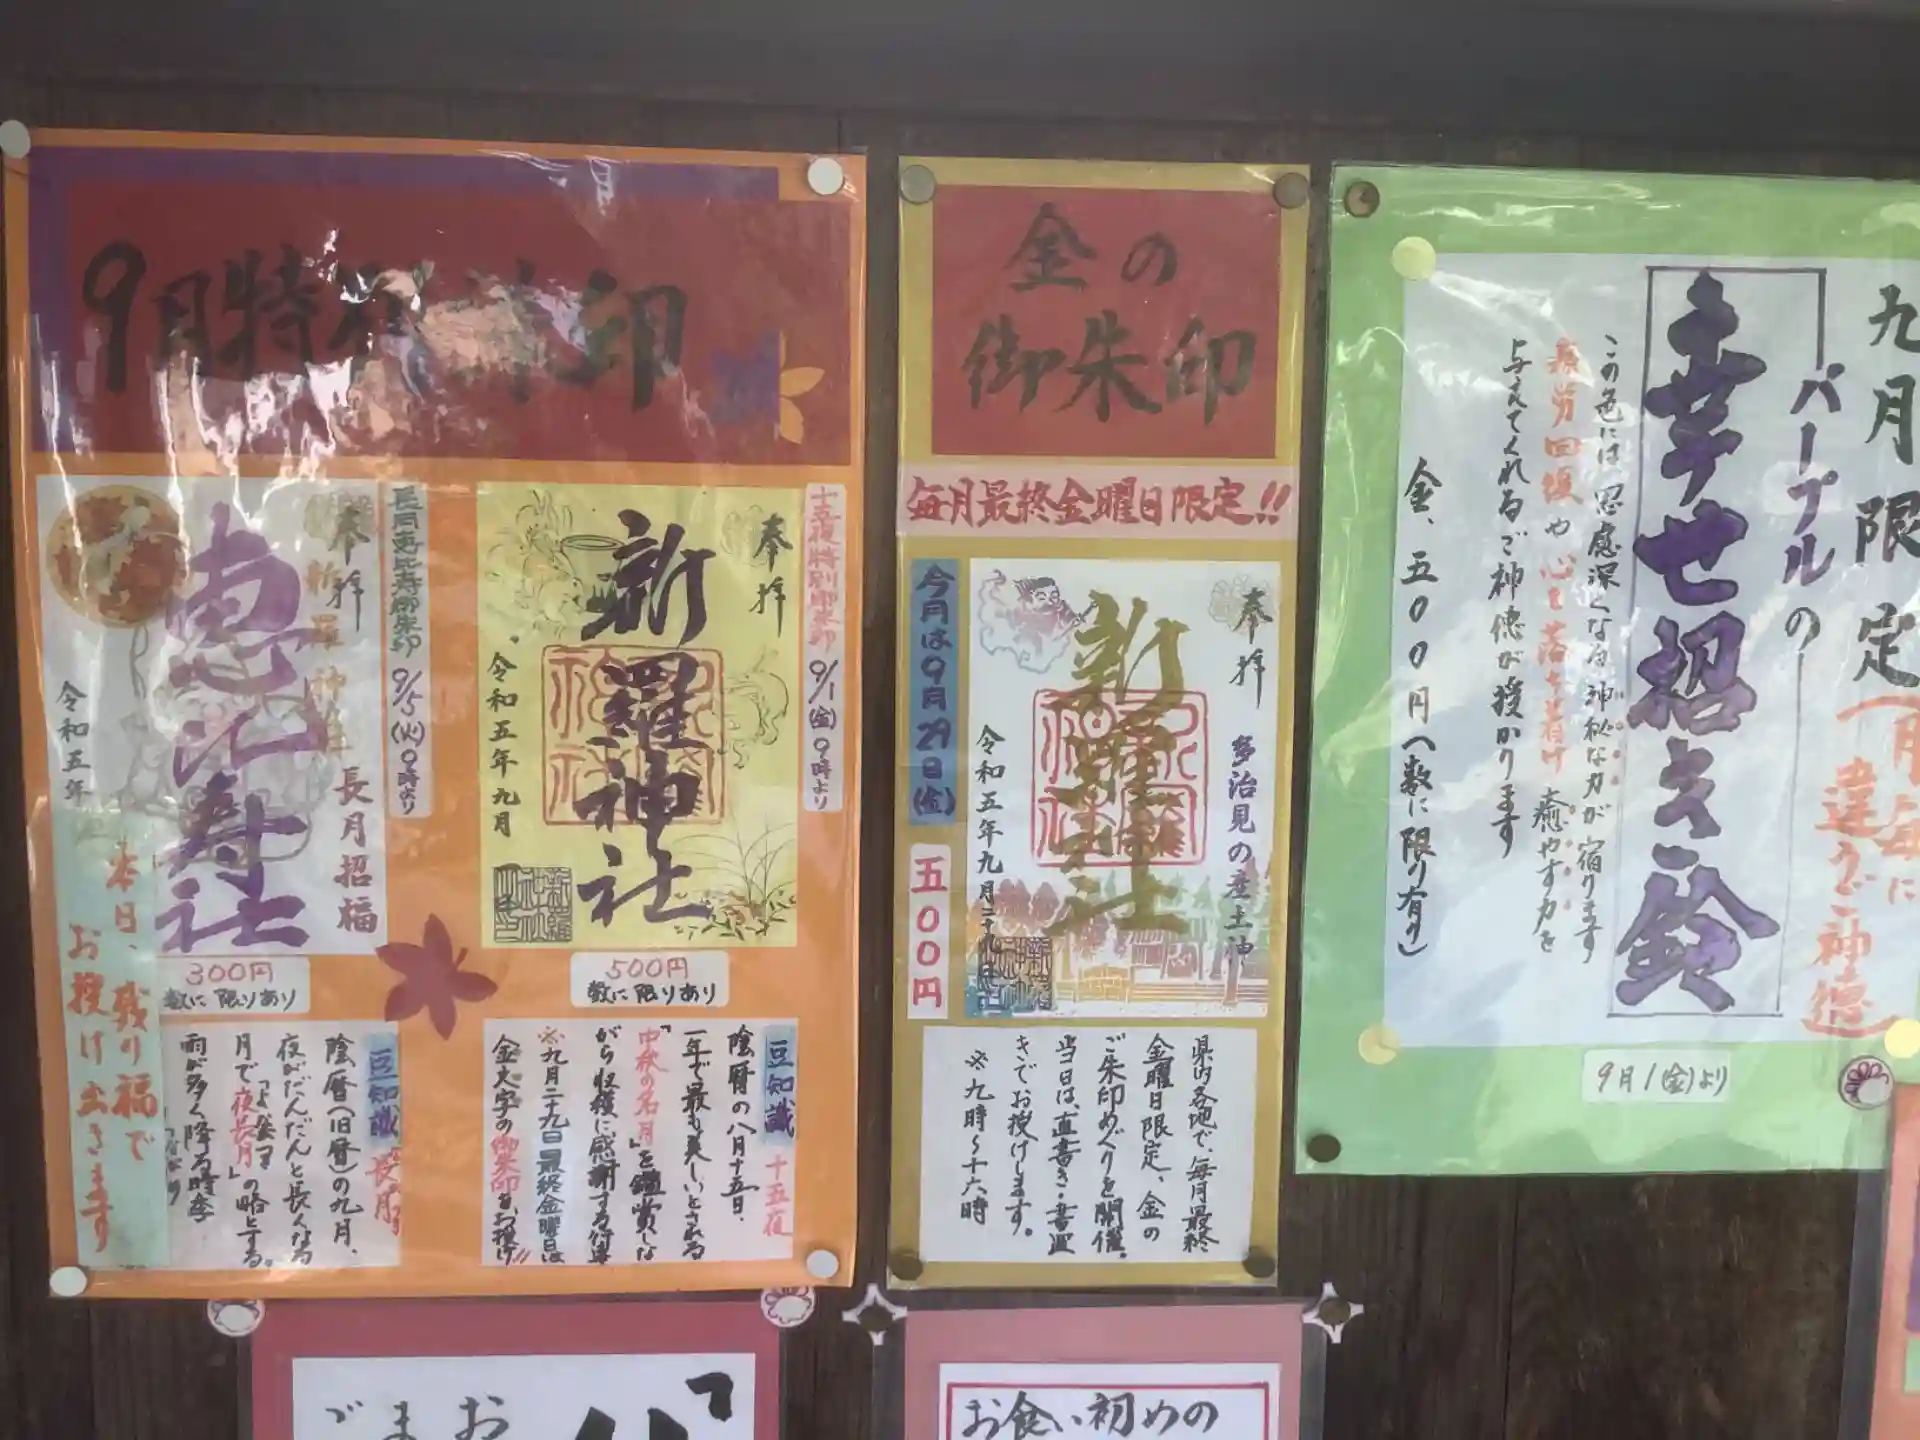 9月特別御朱印
長月恵比寿御朱印 9/5(火)9時より
奉拝
新羅神社
長月招福
恵比寿社
令和五年
本日、残り福で
お授け出きます
300円
数に限りあり
豆知識
長月
陰暦(旧暦)の九月、
夜がだんだんと長くなる
月で「夜長月」の略とする。
雨が多く降る時季
十五夜特別御朱印 9/1(金)9時より
奉拝
新羅神社
令和五年九月
500円
数に限りあり
豆知識 十五夜
陰暦の八月十五日、
一年で最も美しいとされる
「中秋の名月」を鑑賞しな
がら収穫に感謝する行事
※九月二十九日最終金曜日は
金文字の御朱印をお授け!!
金の
御朱印
毎月最終金曜日限定!!
今月は9月29日(金)
五00円
奉拝
多治見の産土神
新羅神社
令和五年九月二十九日
県内各地で、毎月最終
金曜日限定、金の
ご朱印めぐりを開催。
当日は、直書き・書置
きでお授けします。
※九時〜十六時
九月限定
(月毎に
違うご神徳)
パープルの
幸せ招き鈴
この色には思慮深くなる神秘な力が宿ります
疲労回復や心を落ち着け癒やす力を
与えてくれるご神徳が授かります
金、五00円(数に限り有り)
9月1(金)より
お
ま
ご
お食い初めの